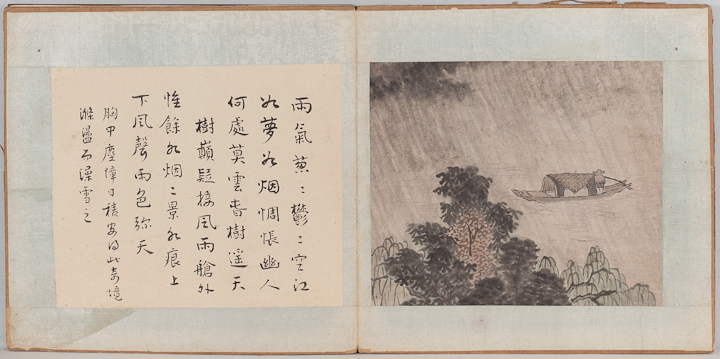 雨氣葱〻鬱〻空江
如夢如烟惆悵幽人
何處莫雲春樹遥天
樹巔疑接風雨艙外
惟餘水烟〻景水痕上
下風聲雨色弥天
胸中塵障日積安得此奇境
滌盪而澡雪之